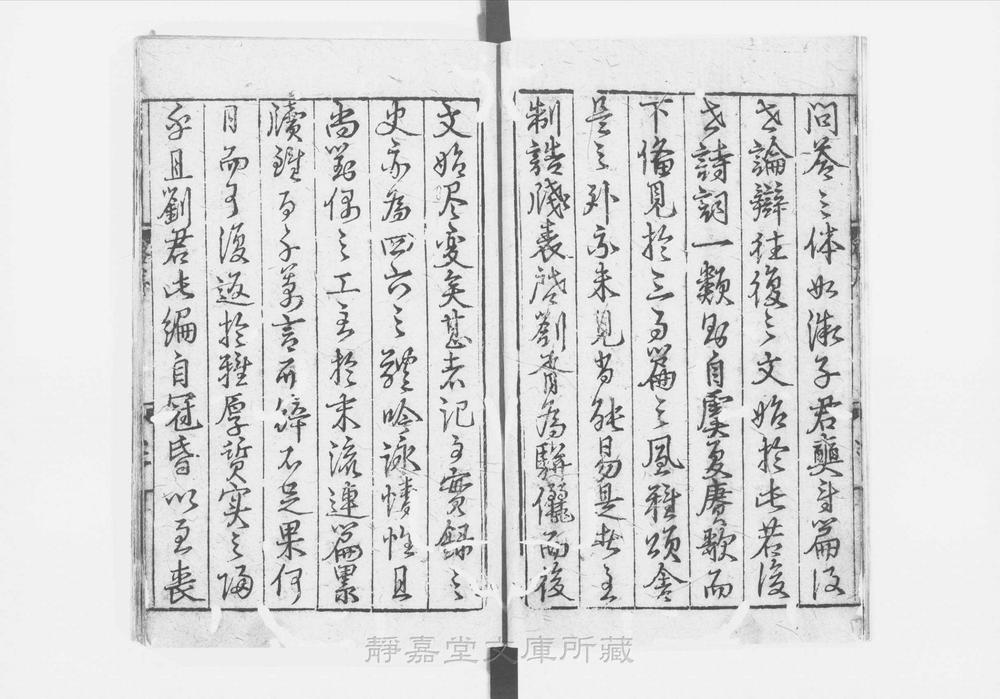 問荅之体如微子君奭等篇後
世論辯往復之文始於此若後
世詩詞一類則自虞夏賡歌而
下備見於三百篇之風雅頌舍
是之外亦未見有能易是者至
制誥牋表啓劄胥為駢儷而後
文始尽变矣甚者記事實録之
史亦為四六之體吟詠情性且
尚對偶之工至於末流連篇累
牘雖百千萬言而辞不足果何
日而可復返於雅厚質实之歸
乎且劉君此編自冠昏以至喪
靜嘉堂文庫所藏